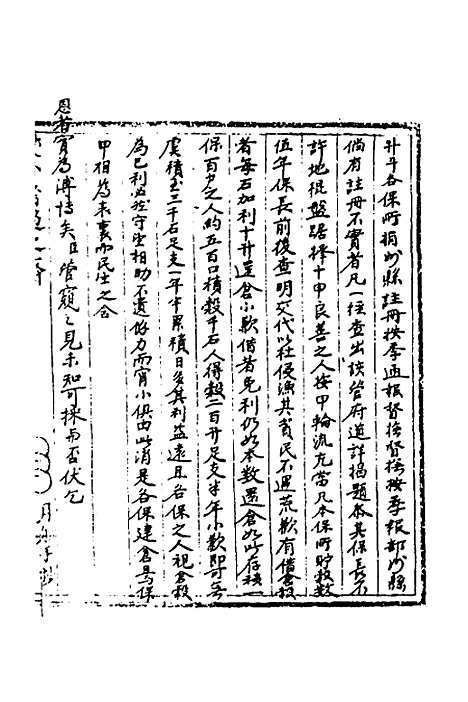 升斗各保所捐州縣註冊按季通報督撫督撫按季報部州縣
倘有註冊不實者凡一經查出該管府道詳揭題參其保長不
許地棍盤踞擇十甲良善之人按甲輪流充當凡本保所貯穀數
伍年保長前後查明交代以杜侵漁其貧民不遇荒歉有借倉穀
者每石加利十升還倉小歉借者免利仍如本數還倉如此存積一
保百戶之人約五百口積穀千石人得穀二百升足支半年小歉即可無
虞積至三千石足支一年半累積日多其利益遠且各保之人視倉穀
為己利必於守望相助不遺餘力而宵小俱由此消是各保建倉與保
甲相為表裏而民生之合
恩者實為溥博矣臣管窺之見未知可採而否伏乞